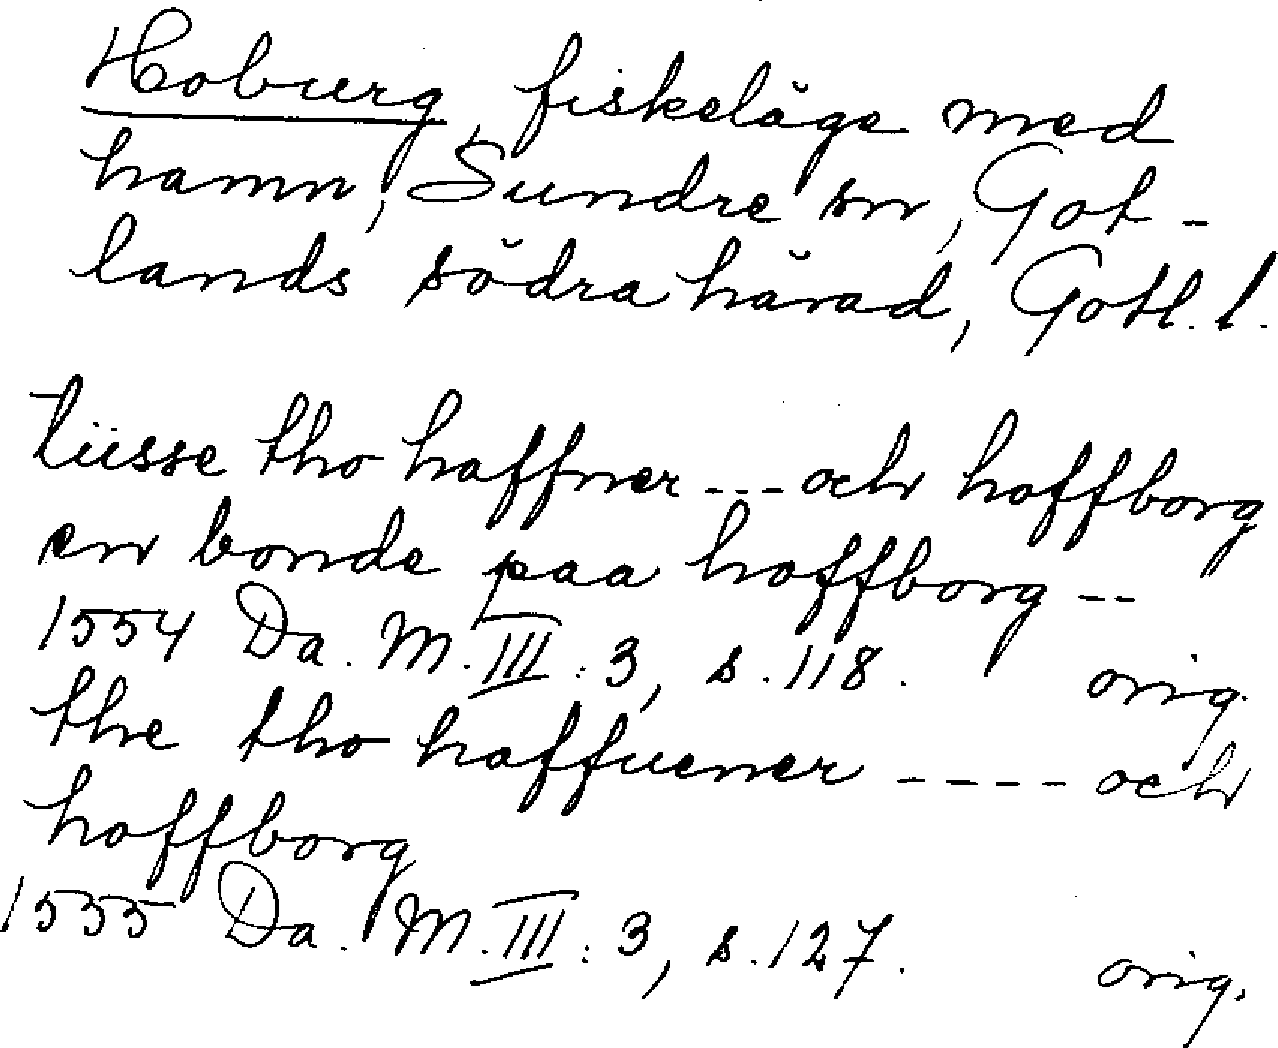 Hoburg, fiskeläge med
hamn, Sundre sn, Got-
lands södra härad, Gotl. l.
tüsse tho haffner --- och hoffborg
en bonde paa hoffborg --
1554 Da. M. III: 3, s. 118. orig.
the tho haffuener ---- och
hoffborg
1555 Da. M. III: 3, s. 127. orig.